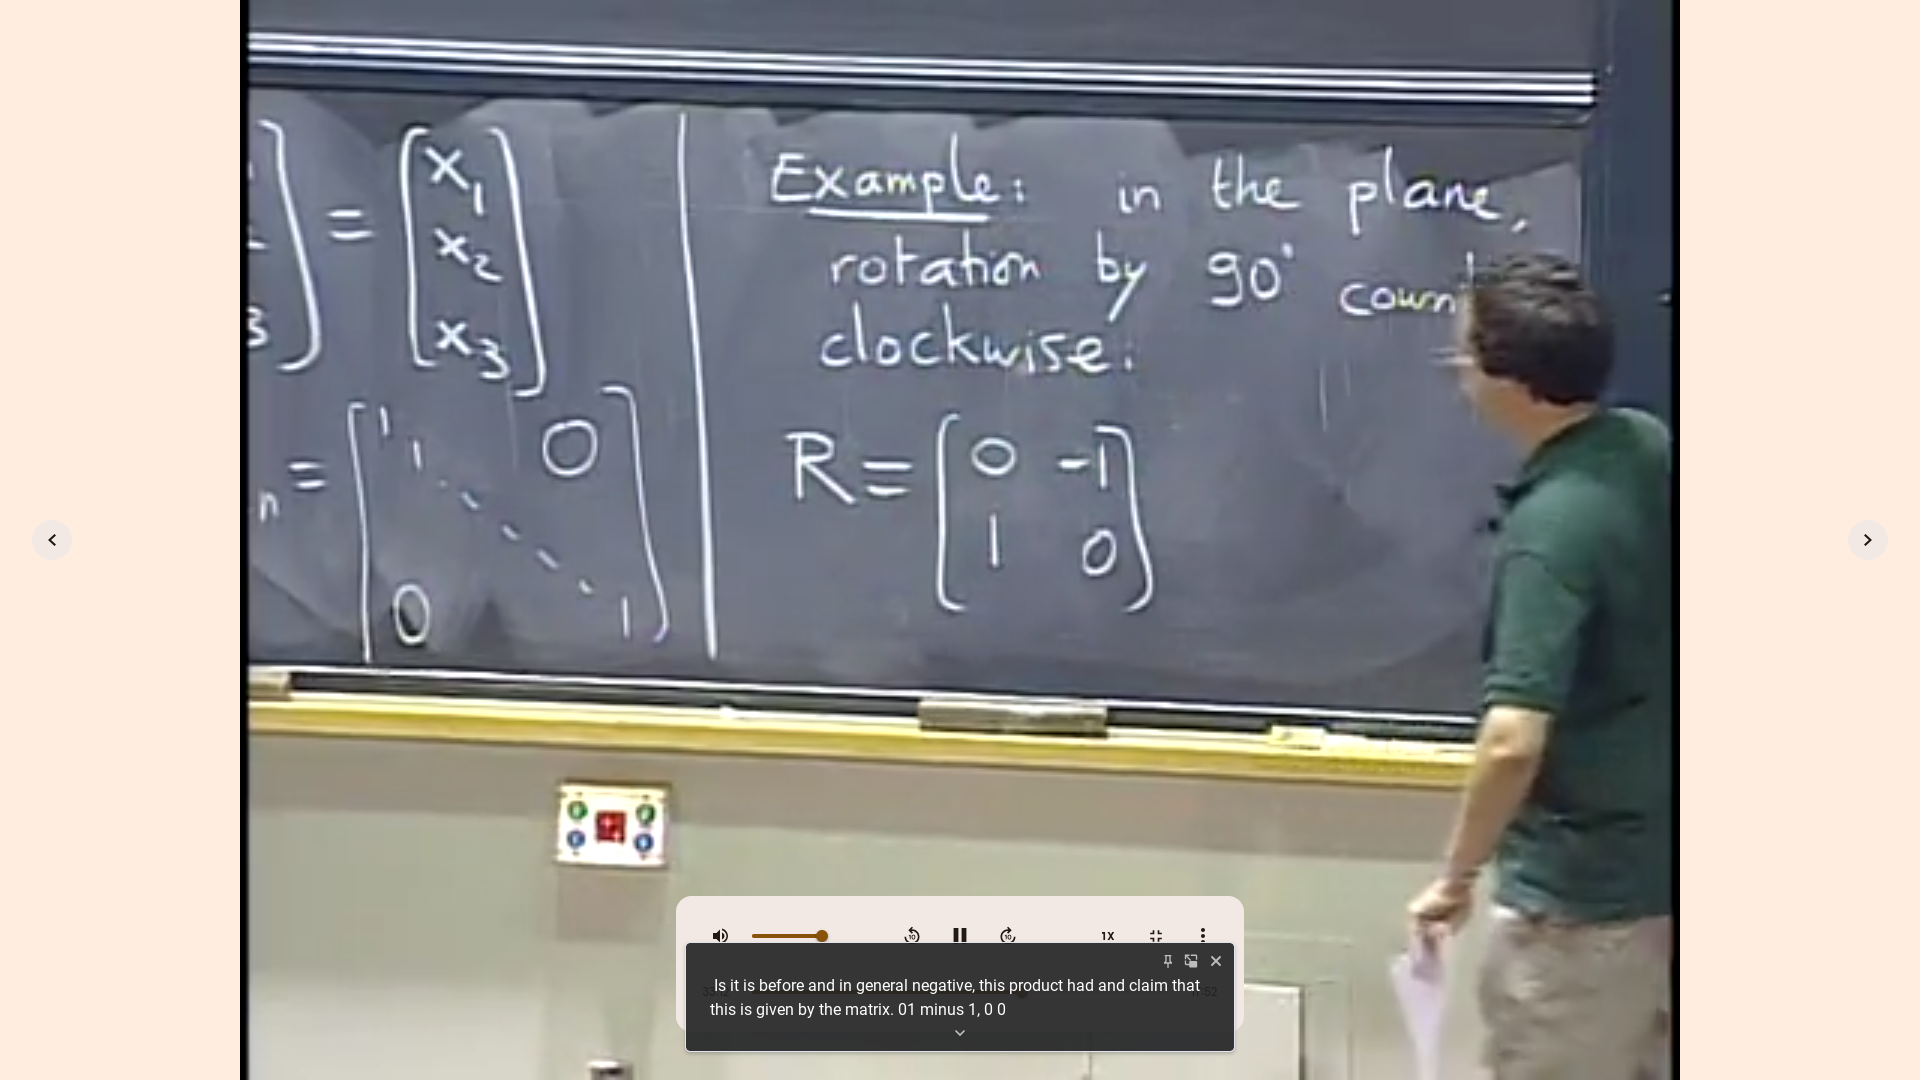 = [x₁
x₂
3] x₃]
n = [1 1 0
0 1]
Example: in the plane,
rotation by 90° coun
clockwise.
R = [0 -1
1 0]
1X
Is it is before and in general negative, this product had and claim that
this is given by the matrix. 01 minus 1, 0 0